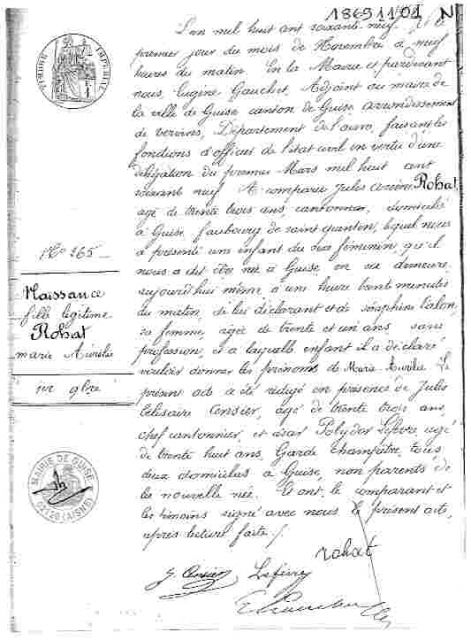 18691101 N
L'an mil huit cent soixante neuf le
premier jour du mois de Novembre à neuf
heures du matin. En la Mairie et pardevant
nous, Eugène Gauchet, Adjoint au maire de
la ville de Guise canton de Guise arrondissement
de Vervins, Département de l'aisne, faisant les
fonctions d'officier de l'état civil en vertu d'une
délégation du premier Mars mil huit cent
soixante neuf A comparu Jules Rohat
agé de trente trois ans, cantonnier, domicilié
à Guise, faubourg de saint quentin, lequel nous
a présenté un infant du sexe féminin, qu'il
nous a dit être né à Guise en sa demeure,
aujourd'hui même à une heure trente minutes
du matin, de lui déclarant et de Séraphine
sa femme, agée de trente et un ans, sans
profession, et a laquelle enfant il a déclaré
vouloir donner les prénoms de Marie Aurélie Le
présent acte a été rédigé en présence de Jules
Censier, agé de trente trois ans,
chef cantonnier, et Polydor Lefèvre agé
de trente huit ans, Garde champêtre, tous
deux domiciliés à Guise, non parents de
la nouvelle née. Et ont, le comparant et
les témoins signé avec nous le présent acte,
après lecture faite.
TIMBRE IMPERIAL
N° 265
Naissance
fille légitime
Rohat
marie Aurélie
MAIRIE DE GUISE
02120 (AISNE)
rohat
J Censier Lefèvre